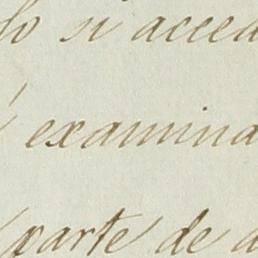 lo si acced
examina
parte de a